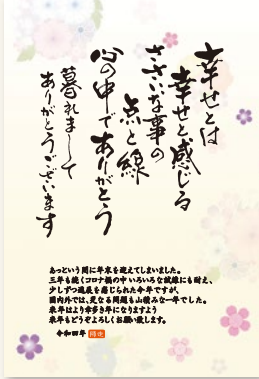 幸せとは
幸せと感じる
ささいな事の
点と線
心の中でありがとう
暮れまして
ありがとうございます
あっという間に年末を迎えてしまいました。
三年も続くコロナ禍の中いろいろな試練にも耐え、
少しずつ進展を感じられた今年ですが、
国内外では、更なる問題も山積みな一年でした。
来年はより幸多き年になりますよう
来年もどうぞよろしくお願い致します。
令和四年